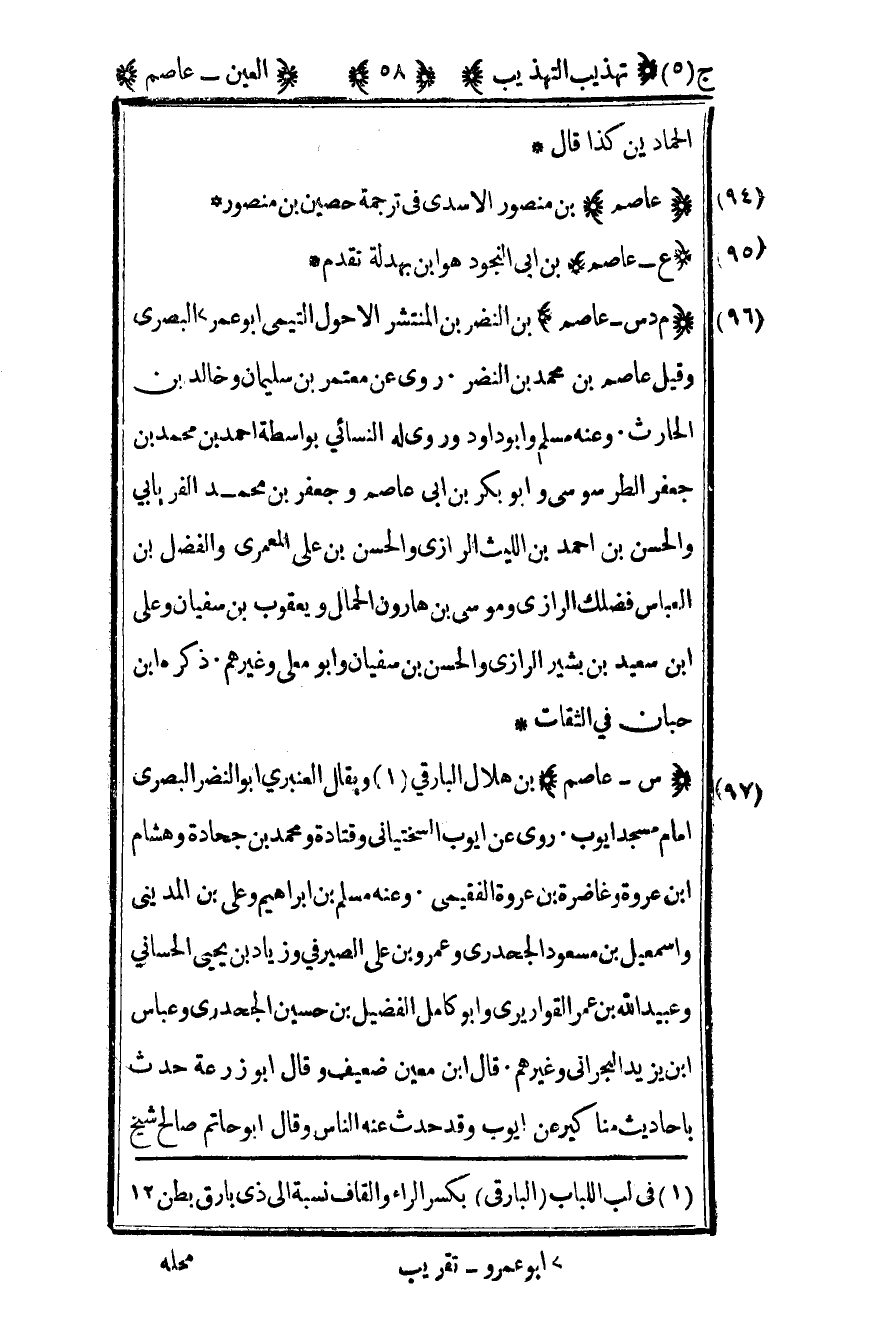 ج (٥) ﴿ تهذيب التهذيب ﴾ ﴿ ٥٨ ﴾ ﴿ العين - عاصم ﴾
الحمادين كذا قال *
(٩٤) ﴿ عاصم ﴾ بن منصور الاسدى فى ترجمة حصين بن منصور *
(٩٥) ﴿ ع - عاصم ﴾ بن ابى النجود هو ابن بهدلة تقدم *
(٩٦) ﴿ م د س - عاصم ﴾ بن النضر بن المنتشر الاحول التيمى ابو عمر > البصرى
وقيل عاصم بن محمد بن النضر · روى عن معتمر بن سليمان و خالد بن
الحارث · وعنه مسلم و ابو داود و روى له النسائي بواسطة احمد بن محمد بن
جعفر الطرسوسى و ابو بكر بن ابى عاصم و جعفر بن محمد الفريابي
والحسن بن احمد بن الليث الرازى والحسن بن على المعمرى والفضل بن
العباس فضلك الرازى و موسى بن هارون الحمال و يعقوب بن سفيان وعلى
ابن سعيد بن بشير الرازى والحسن بن سفيان وابو معلى وغيرهم · ذكره ابن
حبان في الثقات *
(٩٧) ﴿ س - عاصم ﴾ بن هلال البارقي (١) ويقال العنبري ابو النضر البصرى
امام مسجد ايوب · روى عن ايوب السختيانى و قتادة و محمد بن جحادة و هشام
ابن عروة و غاضرة بن عروة الفقيمى · وعنه مسلم بن ابراهيم وعلى بن المدينى
واسمعيل بن مسعود الجحدرى و عمرو بن على الصيرفي وزياد بن يحيى الحساني
وعبيد الله بن عمر القواريرى و ابو كامل الفضيل بن حسين الجحدرى و عباس
ابن يزيد البحرانى وغيرهم · قال ابن معين ضعيف و قال ابو زرعة حدث
باحاديث مناكير عن ايوب وقد حدث عنه الناس وقال ابو حاتم صالح شيخ
(١) فى لب اللباب (البارقى) بكسر الراء والقاف نسبة الى ذى بارق بطن ١٢
> ابو عمرو - تقريب محله